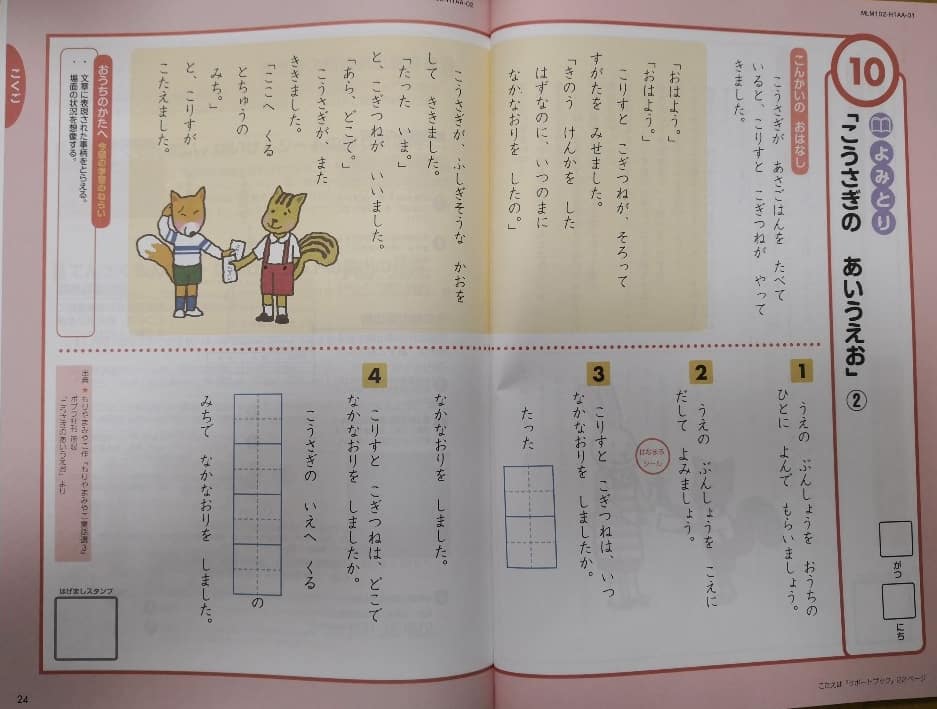 MLM102-H1AA-01
10
よみとり
「こうさぎの あいうえお」②
がつ
にち
こんかいの おはなし
こうさぎが あさごはんを たべて
いると、こりすと こぎつねが やって
きました。
「おはよう。」
「おはよう。」
こりすと こぎつねが、そろって
すがたを みせました。
「きのう けんかを した
はずなのに、いつのまに
なかなおりを したの。」
こうさぎが、ふしぎそうな かおを
して ききました。
「たった いま。」
と、こぎつねが いいました。
「あら、どこで。」
こうさぎが、また
ききました。
「ここへ くる
とちゅうの
みち。」
と、こりすが
こたえました。
おうちのかたへ 今回の学習のねらい
・文章に表現された事柄をとらえる。
・場面の状況を想像する。
こくご
1
うえの ぶんしょうを おうちの
ひとに よんで もらいましょう。
2
うえの ぶんしょうを こえに
だして よみましょう。
はなまる
シール
3
こりすと こぎつねは、いつ
なかなおりを しましたか。
たった
なかなおりを しました。
4
こりすと こぎつねは、どこで
なかなおりを しましたか。
こうさぎの いえへ くる
の
みちで なかなおりを しました。
はげましスタンプ
24
こたえは「サポートブック」22ページ